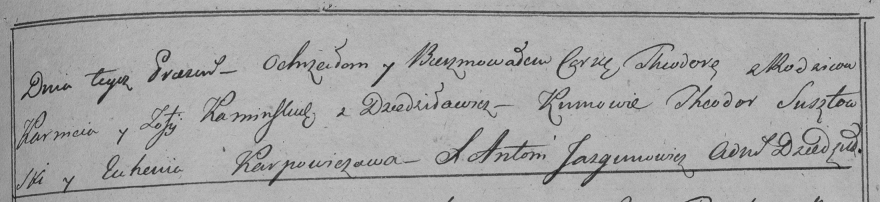 Dnia tegoż Prezent– Ochrzciłem y Bierzmowałem Corkę Theodorę z Rodzicow
y Zofij Kaminskich z Dziedziławicz– Kumowie Theodor Suszko
ski y Euhenia Karpowiczowa– X Antoni Jazgunowicz Adm Dziedził.